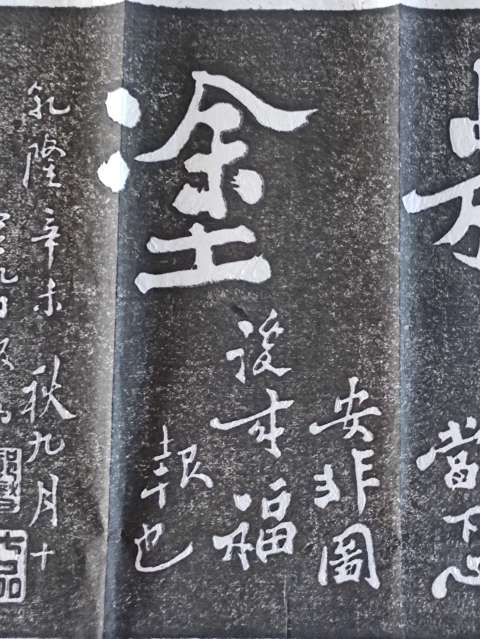 塗
當下心
安非圖
後來福
報也
乾隆辛未秋九月十